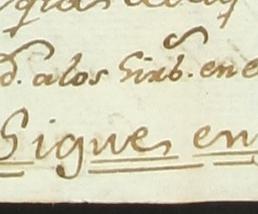 d. a los Sirb. en e
Sigue en